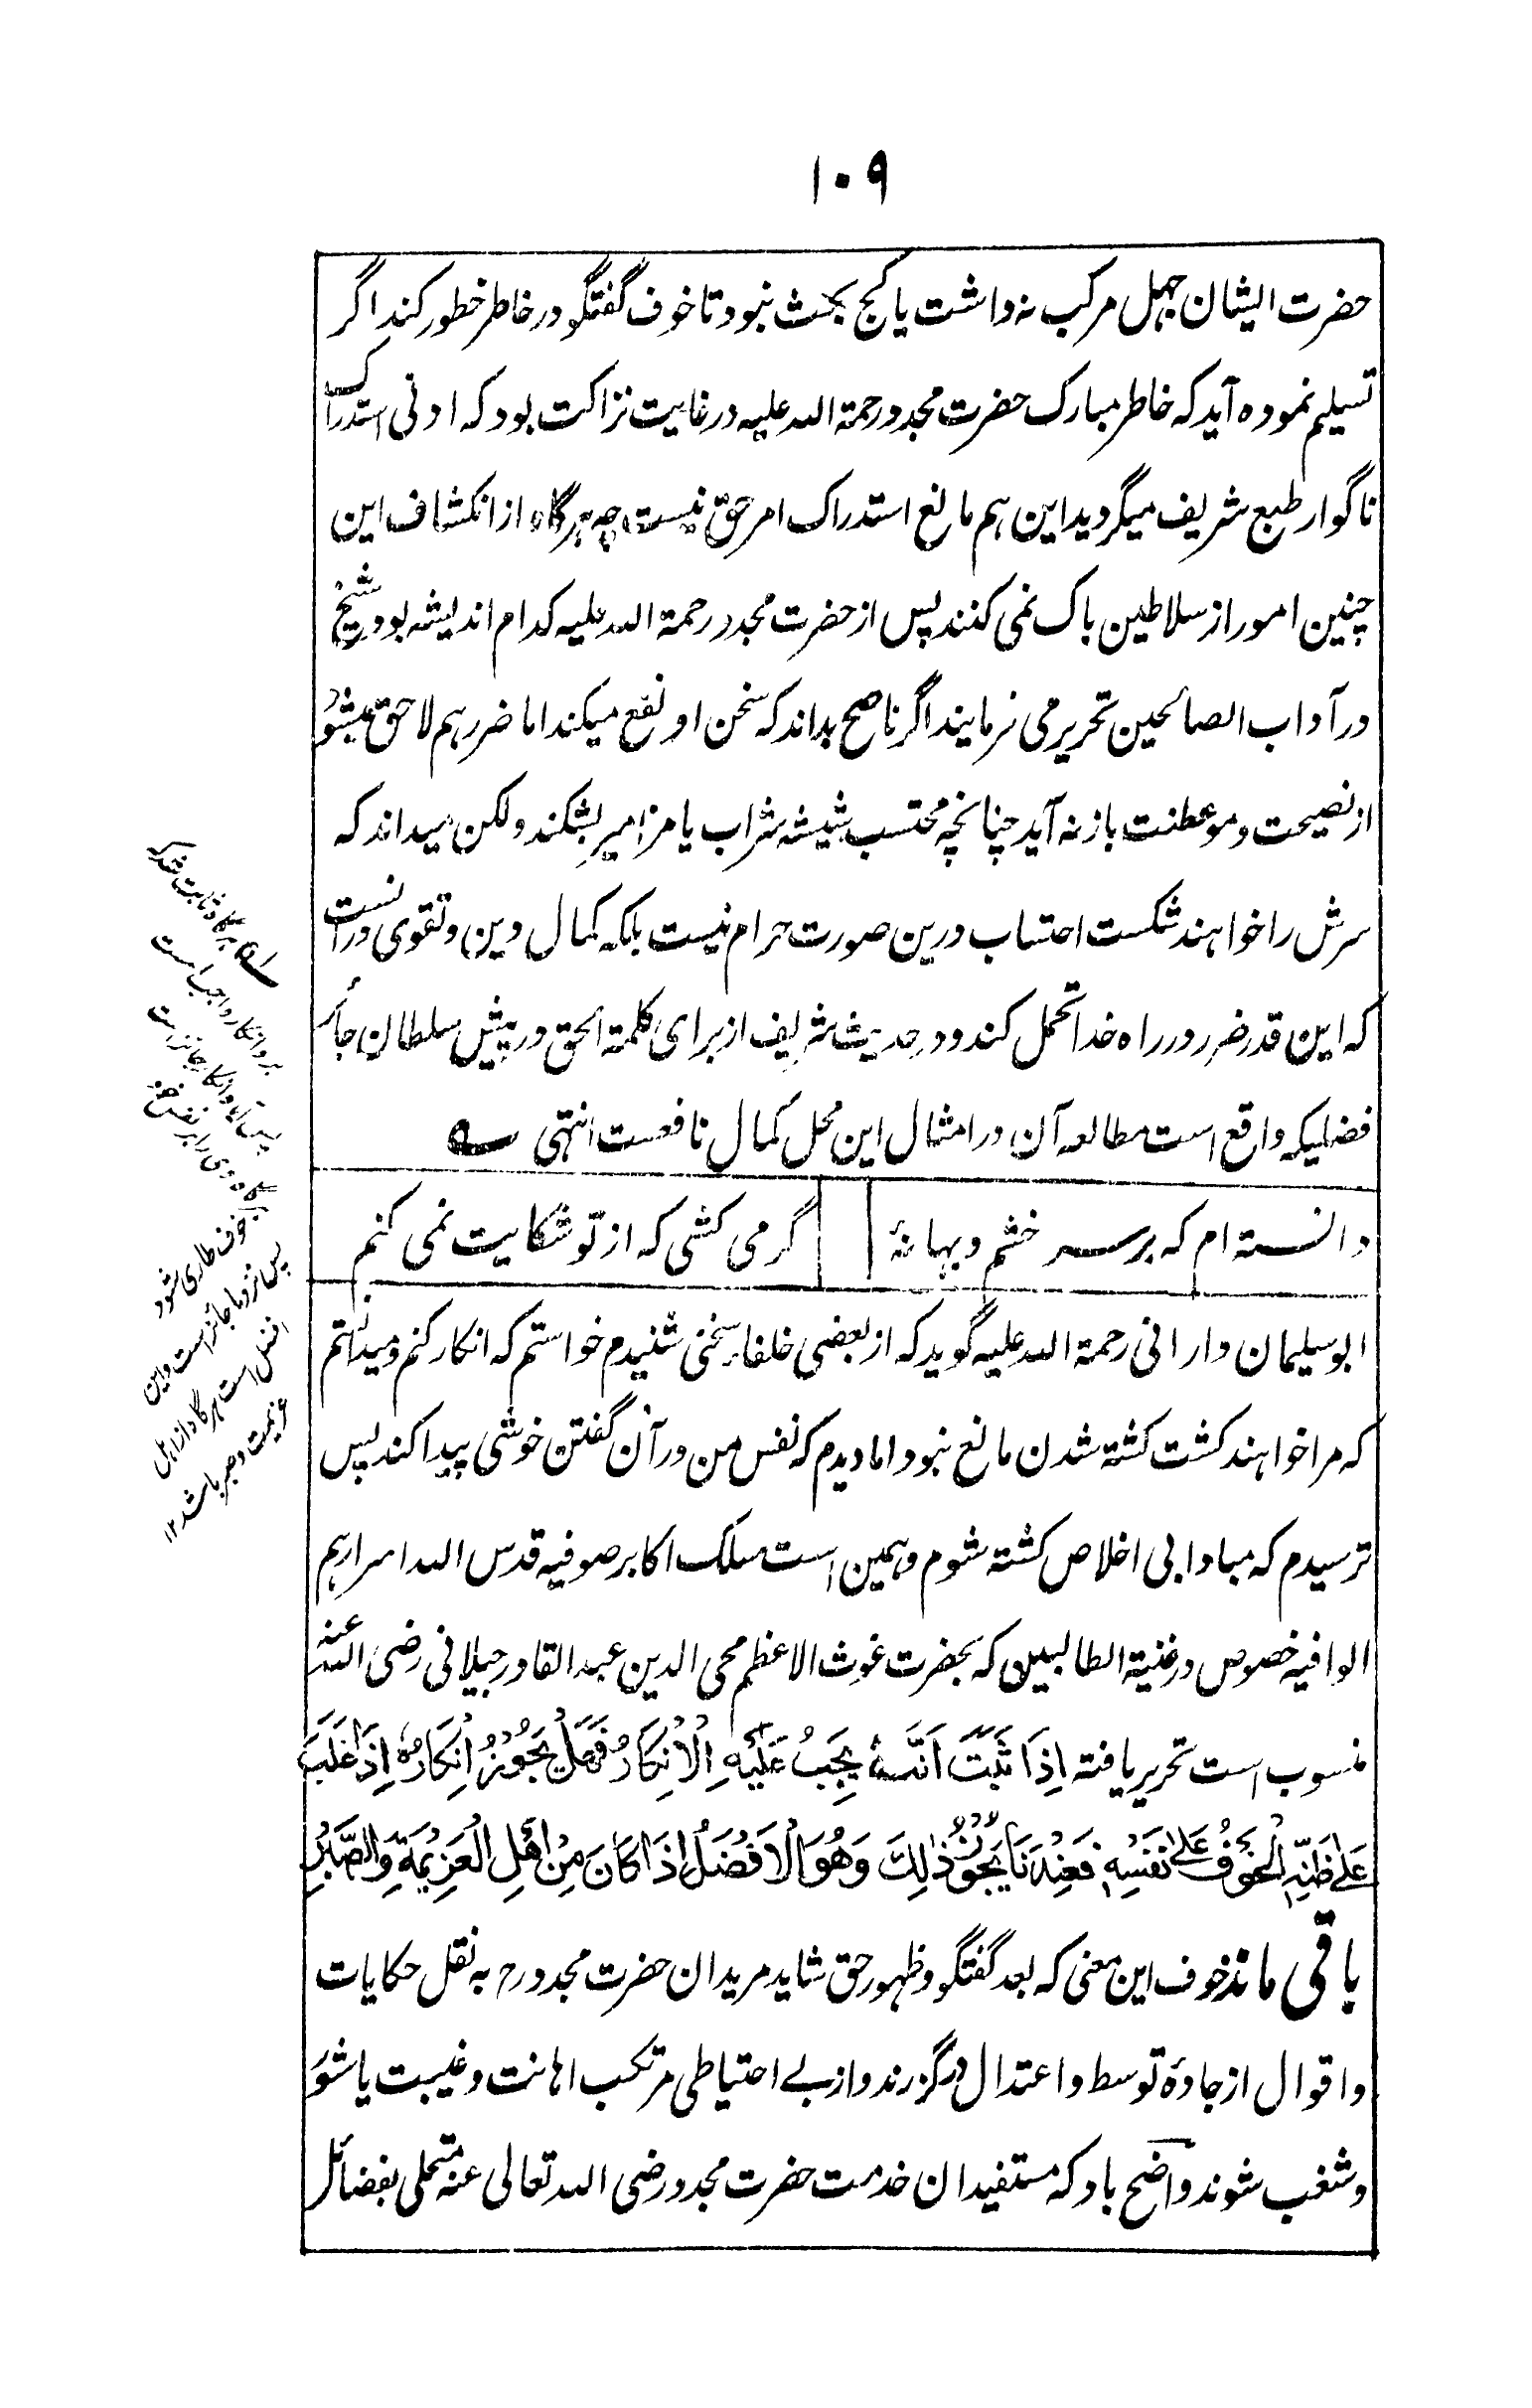 ۱۰۹
حضرت ایشان جهل مرکب نه داشت یا کج بحث نبود تا خوف گفتگو در خاطر خطور کند اگر
تسلیم نموده آید که خاطر مبارک حضرت مجدد رحمة الله علیه در غایت نزاکت بود که ادنی استدراک
ناگوار طبع شریف میگردید این هم مانع استدراک امر حق نیست چه هرگاه از انکشاف این
چنین امور از سلاطین باک نمی کنند پس از حضرت مجدد رحمة الله علیه کدام اندیشه بود شیخ
در آداب الصالحین تحریر می فرمایند اگر ناصح بداند که سخن او نفع میکند اما ضرر هم لاحق میشود
از نصیحت و موعظت باز نه آید چنانچه محتسب شیشه شراب یا مزامیر بشکند ولکن میداند که
سرش را خواهند شکست احتساب درین صورت حرام نیست بلکه کمال دین و تقوی درانست
که این قدر ضرر در راه خدا تحمل کند و در حدیث شریف از برای کلمة الحق در پیش سلطان جائر
فضلیکه واقع است مطالعه آن در امثال این محل کمال نافعست انتهی ؎
دانسته ام که بر سر خشم و بهانۀ گر می کشی که از تو شکایت نمی کنم
ابو سلیمان دارانی رحمة الله علیه گوید که از بعضی خلفا سخنی شنیدم خواستم که انکار کنم و میدانم
که مرا خواهند کشت کشته شدن مانع نبود اما دیدم که نفس من در آن گفتن خوشی پیدا کند پس
ترسیدم که مبادا بی اخلاص کشته شوم و همین است مسلک اکابر صوفیه قدس الله اسرارهم
الوافیه خصوص در غنیة الطالبین که بحضرت غوث الاعظم محی الدین عبد القادر جیلانی رضی الله عنه
منسوب است تحریر یافته اِذَا ثَبَتَ اَنَّهُ یَجِبُ عَلَیْهِ الْاِنْکَارُ فَهَلْ یَجُوْزُ اِنْکَارُهُ اِذَا غَلَبَ
عَلٰی ظَنِّهِ الْخَوْفُ عَلٰی نَفْسِهِ فَعِنْدَنَا یَجُوْزُ ذٰلِکَ وَهُوَ الْاَفْضَلُ اِذَا کَانَ مِنْ اَهْلِ الْعَزِیْمَةِ وَالصَّبْرِ
باقی ماند خوف این معنی که بعد گفتگو و ظهور حق شاید مریدان حضرت مجدد رح به نقل حکایات
و اقوال از جادۀ توسط و اعتدال در گزرند و از بے احتیاطی مرتکب اهانت و غیبت یا شور
و شغب شوند واضح باد که مستفیدان خدمت حضرت مجدد رضی الله تعالی عنه متحلی بفضائل
هرگاه ثابت شد که
بر و انکار واجب است
پس آیا انکار جائز است
هرگاه وی را بر نفس خود
خوف طاری شود
پس نزد ما جائز است و این
افضل است هرگاه از اهل
عزیمت و صبر باشد ۱۲